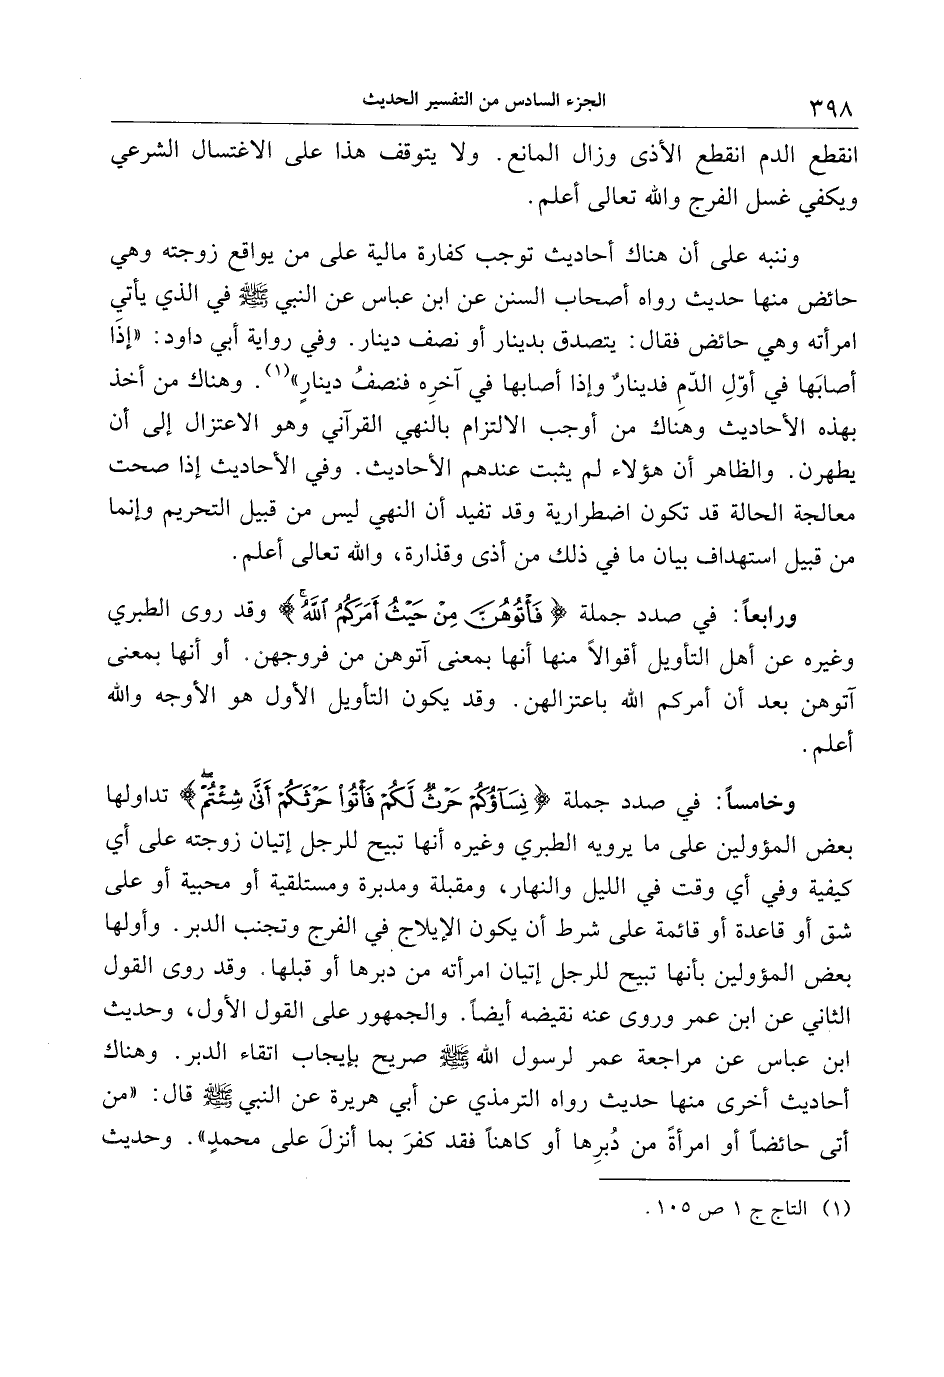 ٣٩٨
الجزء السادس من التفسير الحديث
انقطع الدم انقطع الأذى وزال المانع. ولا يتوقف هذا على الاغتسال الشرعي
ويكفي غسل الفرج والله تعالى أعلم.
وننبه على أن هناك أحاديث توجب كفارة مالية على من يواقع زوجته وهي
حائض منها حديث رواه أصحاب السنن عن ابن عباس عن النبي ﷺ في الذي يأتي
امرأته وهي حائض فقال: يتصدق بدينار أو نصف دينار. وفي رواية أبي داود: «إذَا
أصابَها في أوّلِ الدّمِ فدينارٌ وإذا أصابها في آخرِه فنصفُ دينارٍ»(١). وهناك من أخذ
بهذه الأحاديث وهناك من أوجب الالتزام بالنهي القرآني وهو الاعتزال إلى أن
يطهرن. والظاهر أن هؤلاء لم يثبت عندهم الأحاديث. وفي الأحاديث إذا صحت
معالجة الحالة قد تكون اضطرارية وقد تفيد أن النهي ليس من قبيل التحريم وإنما
من قبيل استهداف بيان ما في ذلك من أذى وقذارة، والله تعالى أعلم.
ورابعاً: في صدد جملة ﴿فَأْتُوهُنَّ مِنْ حَيْثُ أَمَرَكُمُ ٱللَّهُ ۚ﴾ وقد روى الطبري
وغيره عن أهل التأويل أقوالاً منها أنها بمعنى آتوهن من فروجهن. أو أنها بمعنى
آتوهن بعد أن أمركم الله باعتزالهن. وقد يكون التأويل الأول هو الأوجه والله
أعلم.
وخامساً: في صدد جملة ﴿نِسَآؤُكُمْ حَرْثٌ لَّكُمْ فَأْتُوا۟ حَرْثَكُمْ أَنَّىٰ شِئْتُمْ ۖ﴾ تداولها
بعض المؤولين على ما يرويه الطبري وغيره أنها تبيح للرجل إتيان زوجته على أي
كيفية وفي أي وقت في الليل والنهار، ومقبلة ومدبرة ومستلقية أو محبية أو على
شق أو قاعدة أو قائمة على شرط أن يكون الإيلاج في الفرج وتجنب الدبر. وأولها
بعض المؤولين بأنها تبيح للرجل إتيان امرأته من دبرها أو قبلها. وقد روى القول
الثاني عن ابن عمر وروى عنه نقيضه أيضاً. والجمهور على القول الأول، وحديث
ابن عباس عن مراجعة عمر لرسول الله ﷺ صريح بإيجاب اتقاء الدبر. وهناك
أحاديث أخرى منها حديث رواه الترمذي عن أبي هريرة عن النبي ﷺ قال: «من
أتى حائضاً أو امرأةً من دُبرِها أو كاهناً فقد كفرَ بما أنزلَ على محمدٍ». وحديث
(١) التاج ج ١ ص ١٠٥.